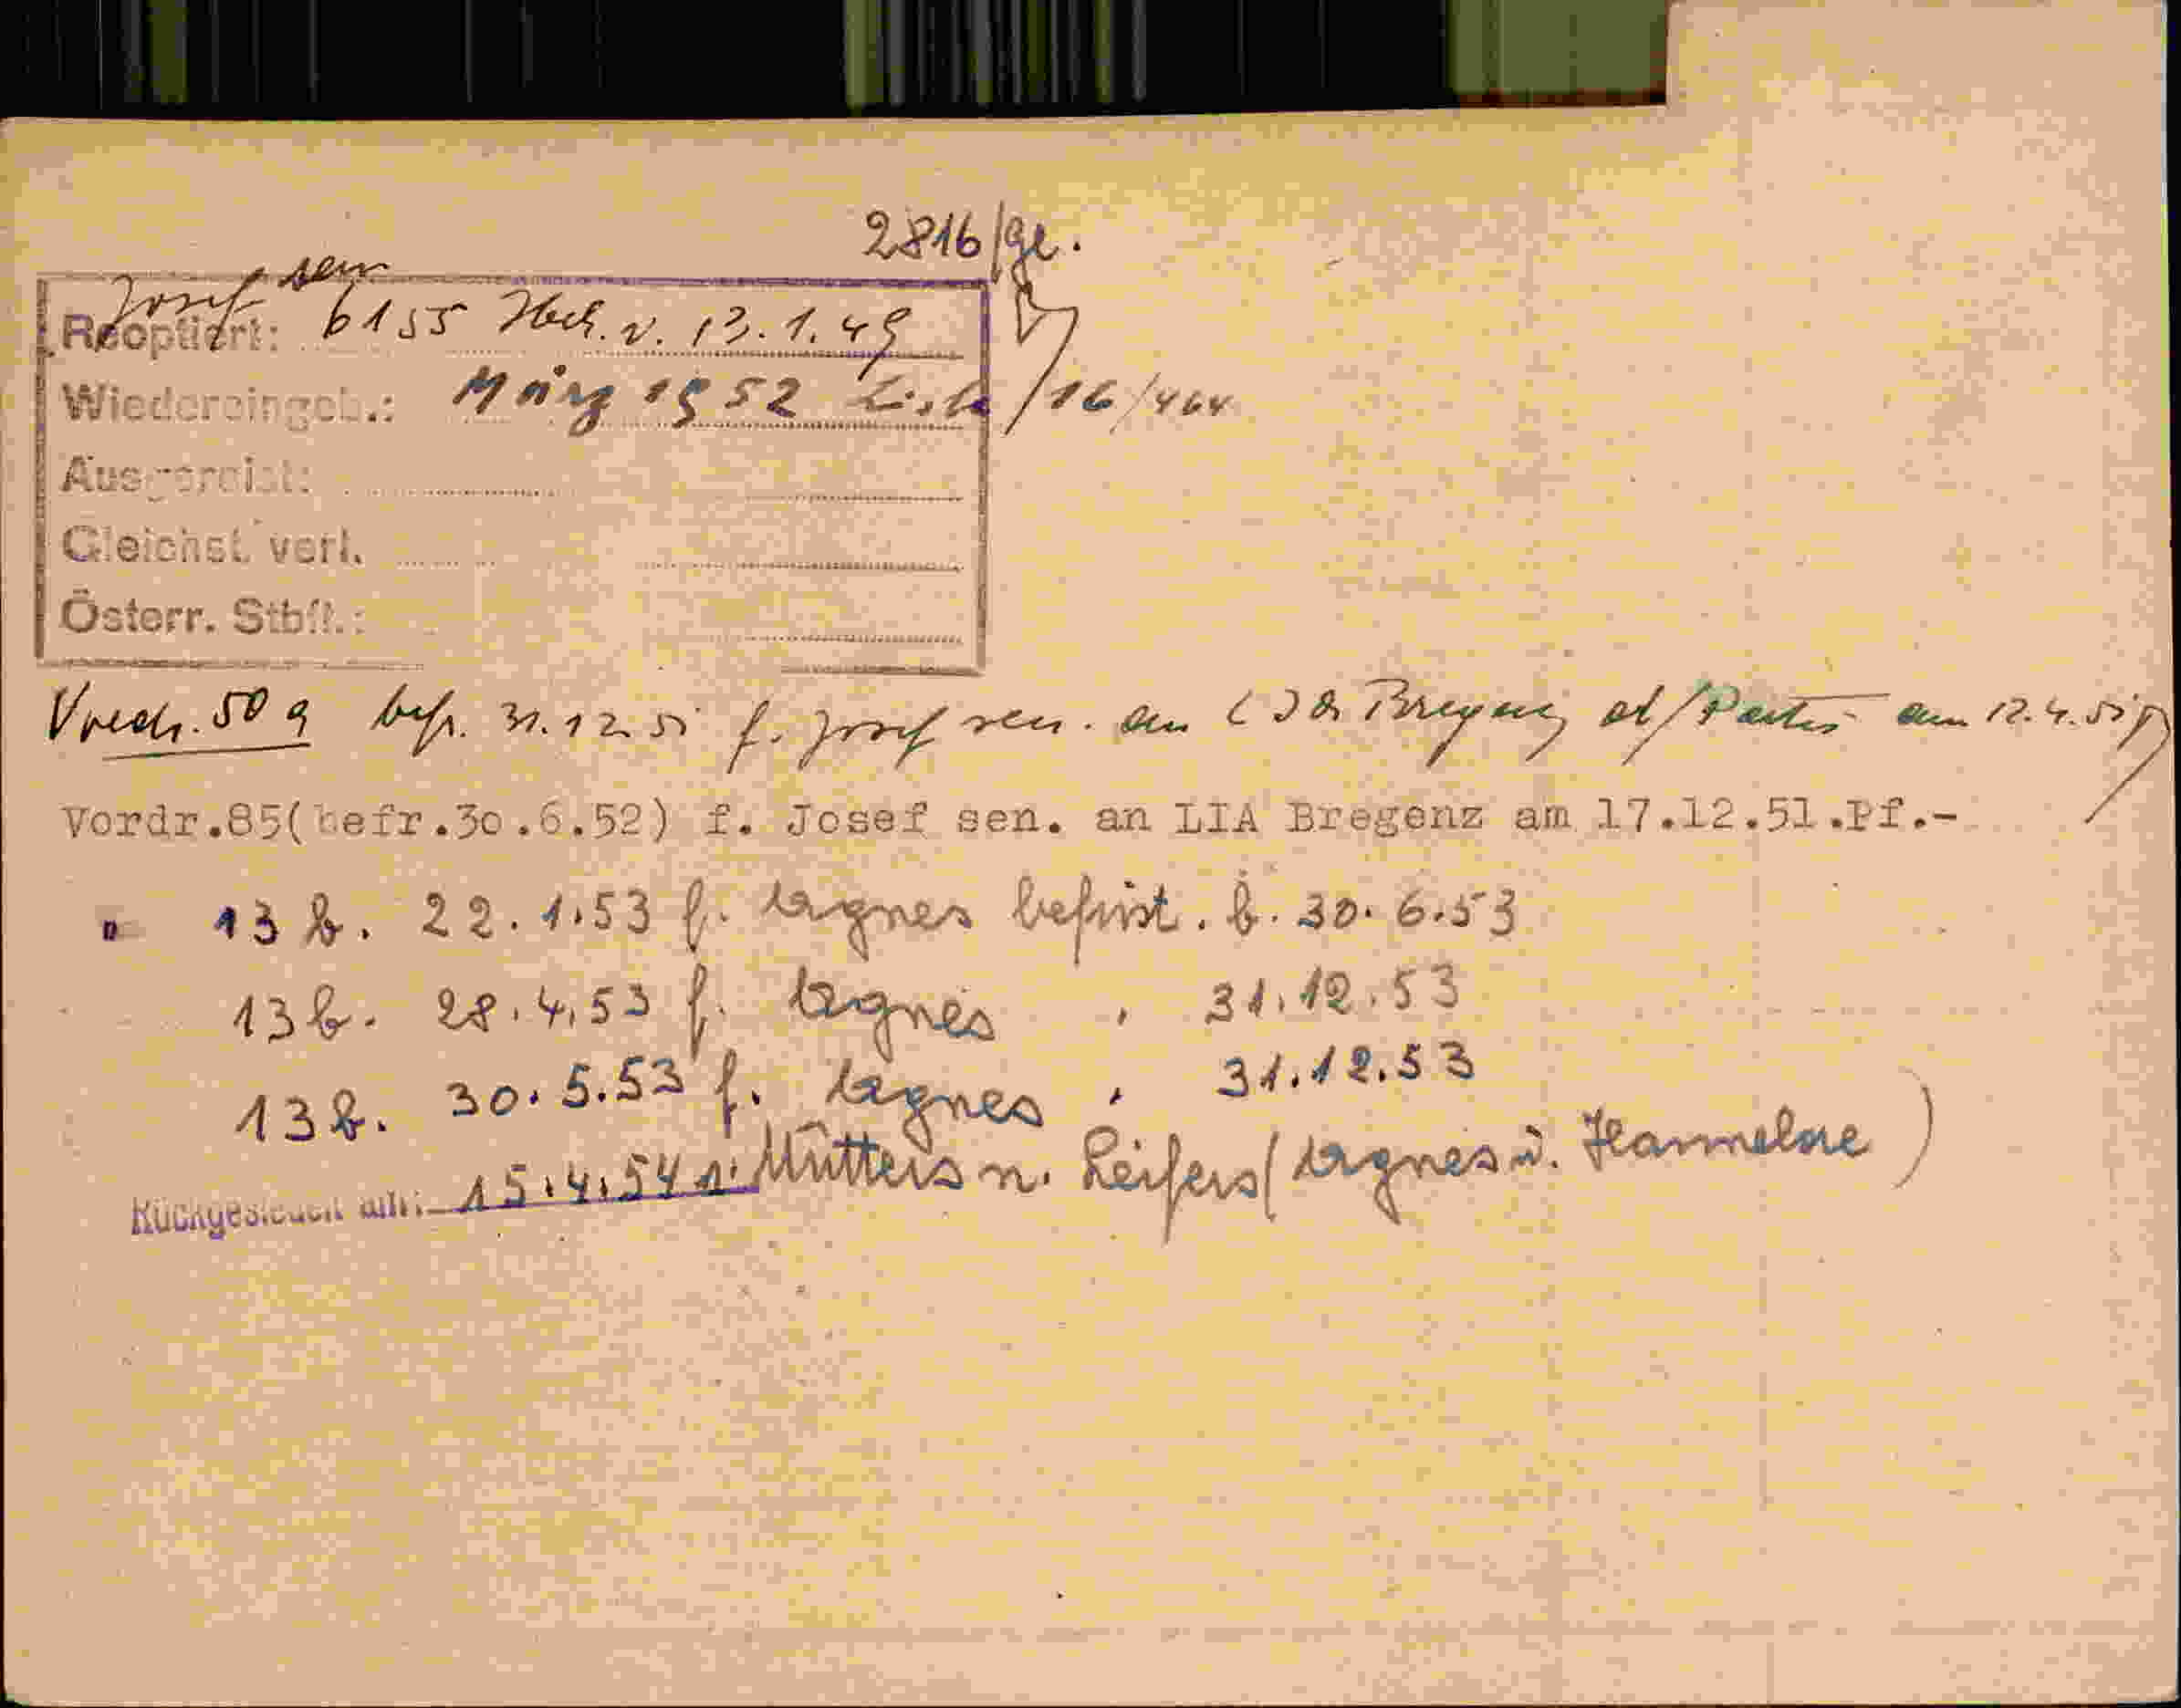 2816/gl.
Josef sen
Reoptiert: 6155 Ibck. v. 13.1.49
Wiedereingeb.: März 1952 Liste /16/464
Ausgereist:
Gleichst. verl.
Österr. Stbft.:
Vordr. 50 a befr. 31.12.51 f. Josef sen. an LIA Bregenz am 12.4.51
Vordr.85(befr.30.6.52) f. Josef sen. an LIA Bregenz am 17.12.51.Pf.-
" 13 b. 22.1.53 f. Agnes befrist. b. 30.6.53
13 b. 28.4.53 f. Agnes " 31.12.53
13 b. 30.5.53 f. Agnes " 31.12.53
Rückgesiedelt am: 15.4.54 v. Mutters n. Leifers (Agnes u. Hannelore)